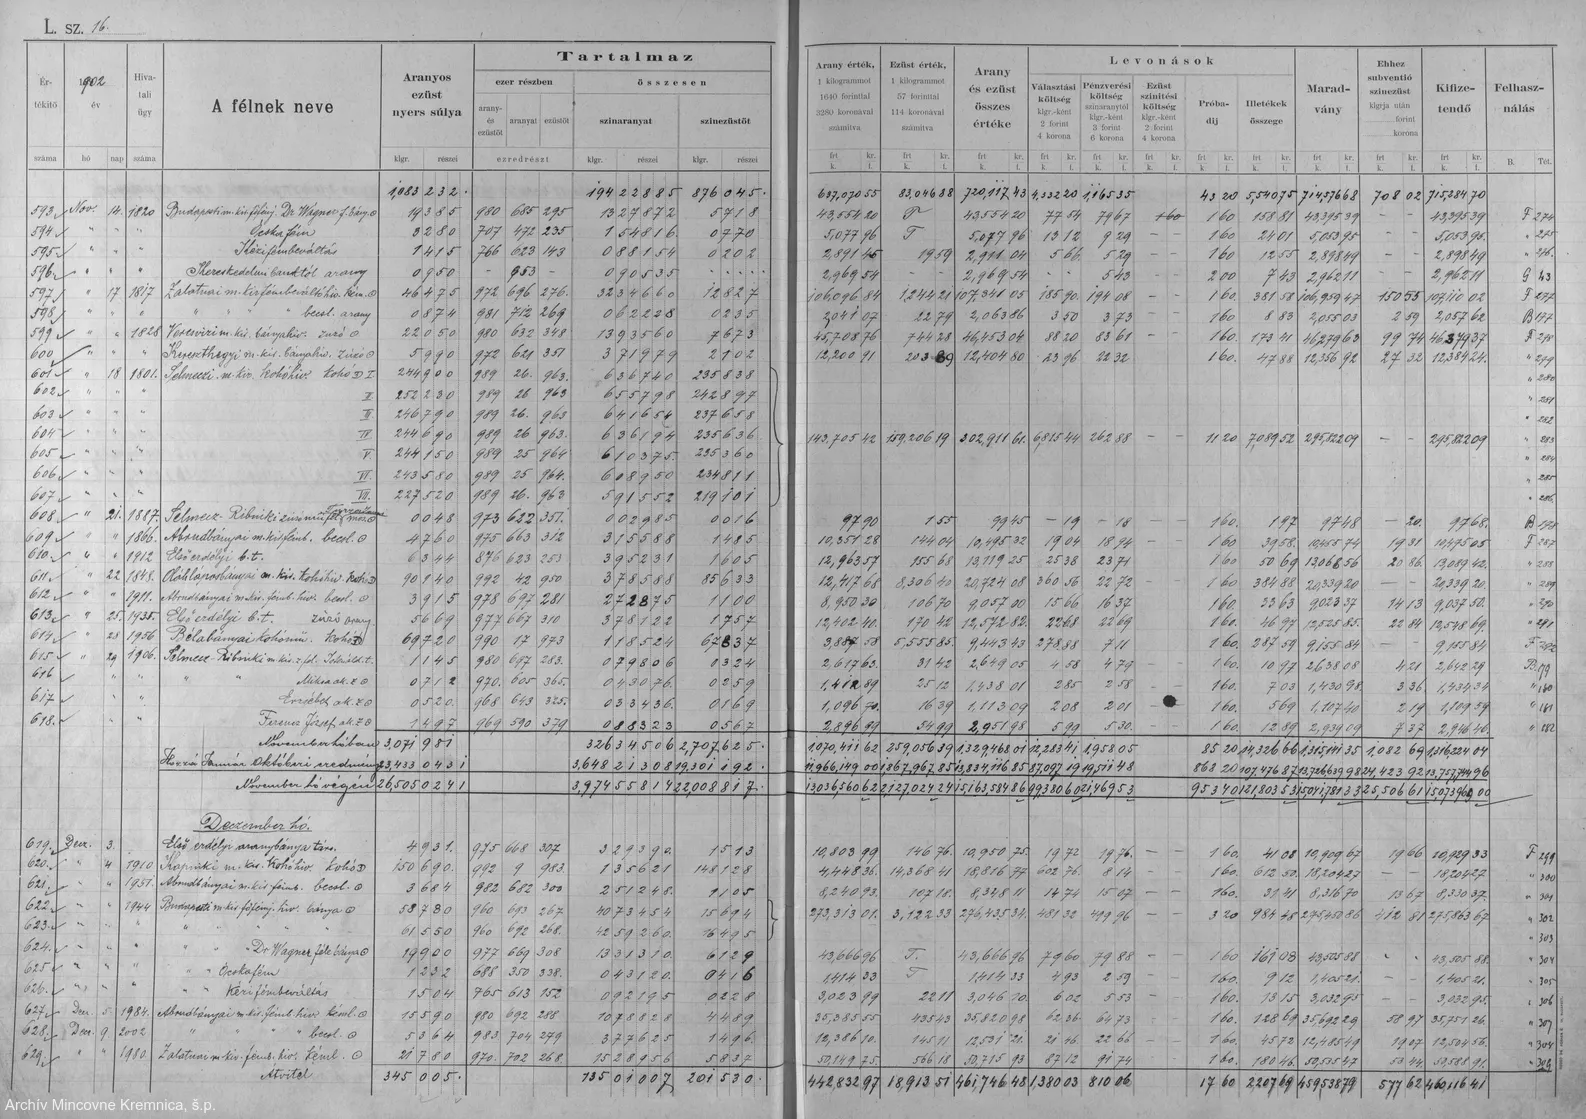 L. sz. 16.
Értékitő száma
1902 év
hó
nap
Hivatali ügy száma
A félnek neve
Aranyos ezüst nyers súlya
klgr. részei
Tartalmaz
ezer részben
arany- és ezüstöt
aranyat
ezüstöt
ezredrészt
összesen
szinaranyat
klgr. részei
szinezüstöt
klgr. részei
Arany érték, 1 kilogrammot 1640 forinttal 3280 koronával számítva
Ezüst érték, 1 kilogrammot 57 forinttal 114 koronával számítva
Arany és ezüst összes értéke
Levonások
Választási költség klgr.-ként 2 forint 4 korona
Pénzverési költség szinaranytól klgr.-ként 3 forint 6 korona
Ezüst szinitési költség klgr.-ként 2 frt 4 korona
Próbadij
Illetékek összege
Maradvány
Ehhez subventió szinezüst klgrja után forint korona
Kifizetendő
Felhasználás
B. Tét.
1,983 232. 194 22885 876 045.
637,070 55 83,046 38 720,117 43 4,332 20 1,165 35 43 20 5,540 75 714,576 68 708 02 715,284 70
593 Nov. 14. 1820 Budapesti m. kir. főfénj. Dr Wagner f. bány. 19385 980 685 295 1327872 5718
43,554 20 43,554 20 77 54 79 67 1 60 158 81 43,395 39 – – 43,395 39 F 274
594 " " " Ocskafém 3280 707 472 235 154816 0770
5,077 96 5,077 96 13 12 9 29 – – 1 60 24 01 5,053 95 – – 5,053 95 " 275
595 " " " Kézifémbeváltás 1415 766 623 143 088154 0202
2,891 45 19 59 2,911 04 5 66 5 29 – – 1 60 12 55 2,898 49 – – 2,898 49 " 276
596 " " " Kereskedelmi banktól arany 0950 – 953 – 090535
2,969 54 2,969 54 5 43 2 00 7 43 2,962 11 2,962 11 G 43
597 " 17 1817 Zalatnai m. kir. fémbeváltó hiv. kém. 46475 972 696 276 3234660 12827
106,096 84 1,244 21 107,341 05 185 90 194 08 – – 1 60 381 58 106,959 47 150 55 107,110 02 F 277
598 " " " becsl. arany 0874 981 712 269 062228 0235
2,041 07 22 79 2,063 86 3 50 3 73 – – 1 60 8 83 2,055 03 2 59 2,057 62 B 177
599 " " 1828 Veresvizi m. kir. bányahiv. zuzó 22050 980 632 348 1393560 7673
45,708 76 744 28 46,453 04 88 20 83 61 – – 1 60 173 41 46,279 63 99 74 46,379 37 F
600 " " " Kereszthegyi m. kir. bányahiv. zuzó 5990 972 621 351 371979 2102
12,200 91 203 89 12,404 80 23 96 22 32 1 60 47 88 12,356 92 27 32 12,384 24 " 279
601 " 18 1801 Selmeczi m. kir. kohóhiv. kohó I 244900 989 26 963 636740 235838 " 280
602 " " " II 252230 989 26 963 655798 242897 " 281
603 " " " III 246790 989 26 963 641654 237658 " 282
604 " " " IV 244690 989 26 963 636194 235636
143,705 42 159,206 19 302,911 61 6,815 44 262 88 – – 11 20 7,089 52 295,822 09 – – 295,822 09 " 283
605 " " " V 244150 989 25 964 610375 235360 " 284
606 " " " VI 243580 989 25 964 608950 234811 " 285
607 " " " VII 227520 989 26 963 591552 219101 " 286
608 " 21 1887 Selmecz-Ribniki 0048 973 622 351 002985 0016
97 90 1 55 99 45 – 19 – 18 1 60 1 97 97 48 – 20 97 68 B
609 " " 1806 Abrudbányai m. kir. fémb. becsl. 4760 975 663 312 315588 1485
10,351 28 144 04 10,495 32 19 04 18 94 – – 1 60 39 58 10,455 74 19 31 10,475 05 F 287
610 " " 1912 Első erdélyi b. t. 6344 876 623 253 395231 1605
12,963 57 155 68 13,119 25 25 38 23 71 1 60 50 69 13,068 56 20 86 13,089 42 " 288
611 " 22 1848 Oláhláposbányai m. kir. kohóhiv. kohó 90140 992 42 950 378588 85633
12,417 68 8,306 40 20,724 08 360 56 22 72 – – 1 60 384 88 20,339 20 – – 20,339 20 " 289
612 " " 1911 Abrudbányai m. kir. fémb. hiv. becsl. 3915 978 697 281 272875 1100
8,950 30 106 70 9,057 00 15 66 16 37 1 60 33 63 9,023 37 14 13 9,037 50 " 290
613 " 25 1935 Első erdélyi b. t. zúzó arany 5669 977 667 310 378122 1757
12,402 40 170 42 12,572 82 22 68 22 69 1 60 46 97 12,525 85 22 84 12,548 69 " 291
614 " 28 1956 Bélabányai kohómű kohó 69720 990 17 973 118524 67837
3,887 58 5,555 85 9,443 43 278 88 7 11 1 60 287 59 9,155 84 9,155 84 F 292
615 " 29 1906 Selmecz-Ribniki m. kir. z. 1145 980 697 283 079806 0324
2,617 63 31 42 2,649 05 4 58 4 79 1 60 10 97 2,638 08 4 21 2,642 29 B 179
616 " " " Miksa ak. z. 0712 970 605 365 043076 0259
1,412 89 25 12 1,438 01 2 85 2 58 1 60 7 03 1,430 98 3 36 1,434 34 " 180
617 " " Erzsébet ak. z. 0520 968 643 325 033436 0169
1,096 70 16 39 1,113 09 2 08 2 01 1 60 5 69 1,107 40 2 19 1,109 59 " 181
618 " " Ferencz József ak. z. 1497 969 590 379 088323 0567
2,896 99 54 99 2,951 98 5 99 5 30 – – 1 60 12 89 2,939 09 7 37 2,946 46 " 182
Novemberhóban 3,071 951 326 34506 2,707 625
1,070,411 62 259,056 39 1,329,468 01 12,283 41 1,958 05 85 20 14,326 66 1,315,141 35 1,082 69 1,316,224 04
Hozzá Január Októberi eredmény 23,433 0431 3,648 21308 19,301 192
11,966,149 00 1,867,967 85 13,834,116 85 87,097 19 19,511 48 868 20 107,476 87 13,726,639 98 24,423 92 13,757,744 96
November hó végén 26,505 0241 3,974 55814 22,008 817
13,036,560 62 2,127,024 24 15,163,584 86 99,380 60 21,469 53 953 40 121,803 53 15,041,781 33 25,506 61 15,073,969 00
Deczember hó.
619 Decz. 3. Első erdélyi aranybánya társ. 4931 975 668 307 329390 1513
10,803 99 146 76 10,950 75 19 72 19 76 – – 1 60 41 08 10,909 67 19 66 10,929 33 F 299
620 " 4 1910 Kapniki m. kir. kohóhiv. kohó 150690 992 9 983 135621 148128
4,448 36 14,368 41 18,816 77 602 76 8 14 1 60 612 50 18,204 27 – – 18,204 27 " 300
621 " " 1951 Abrudbányai m. kir. fémb. becsl. 3684 982 682 300 251248 1105
8,240 93 107 18 8,348 11 14 74 15 07 – – 1 60 31 41 8,316 70 13 67 8,330 37 " 301
622 " " 1944 Budapesti m. kir. főfénj. hiv. bánya 58780 960 693 267 4073454 15694
273,313 01 3,122 33 276,435 34 481 32 499 96 – – 3 20 984 48 275,450 86 412 81 275,863 67 " 302
623 " " " 61550 960 692 268 4259260 16495 " 303
624 " " " Dr Wagner féle bánya 19900 977 669 308 1331310 6129
43,666 96 43,666 96 79 60 79 88 1 60 161 08 43,505 88 43,505 88 " 304
625 " " " Ócskafém 1232 688 350 338 043120 0416
1,414 33 1,414 33 4 93 2 59 1 60 9 12 1,405 21 – – 1,405 21 " 305
626 " " " Kézifémbeváltás 1504 765 613 152 092195 0228
3,023 99 22 11 3,046 10 6 02 5 53 – – 1 60 13 15 3,032 95 – – 3,032 95 " 306
627 Decz. 5 1984 Abrudbányai m. kir. fémb. hiv. kéml. 15590 980 692 288 1078828 4489
35,385 55 435 43 35,820 98 62 36 64 73 – – 1 60 128 69 35,692 29 58 97 35,751 26 " 307
628 Decz. 9 2002 " " becsl. 5364 983 704 279 377625 1496
12,386 10 145 11 12,531 21 21 46 22 66 – – 1 60 45 72 12,485 49 19 07 12,504 56 " 304
629 " " 1980 Zalatnai m. kir. fémb. hiv. kéml. 21780 970 702 268 1528956 5837
50,149 75 566 18 50,715 93 87 12 91 74 – – 1 60 180 46 50,535 47 53 44 50,588 91
Átvitel 345 005. 135 01007 201 530
442,832 97 18,913 51 461,746 48 1,380 03 810 06 17 60 2,207 69 459,538 79 577 62 460,116 41
Archív Mincovne Kremnica, š.p.